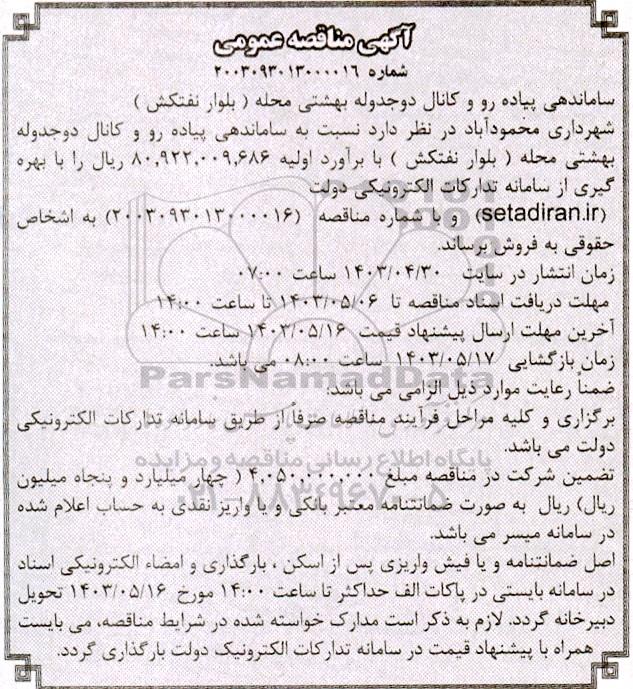 آگهی مناقصه عمومی
شماره ۲۰۰۳۰۹۳۰۱۳۰۰۰۰۱۶
ساماندهی پیاده رو و کانال دوجدوله بهشتی محله ( بلوار نفتکش )
شهرداری محمودآباد در نظر دارد نسبت به ساماندهی پیاده رو و کانال دوجدوله
بهشتی محله ( بلوار نفتکش ) با برآورد اولیه ۸۰,۹۲۲,۰۰۹,۶۸۶ ریال را با بهره
گیری از سامانه تدارکات الکترونیکی دولت
(setadiran.ir) و با شماره مناقصه (۲۰۰۳۰۹۳۰۱۳۰۰۰۰۱۶) به اشخاص
حقوقی به فروش برساند.
زمان انتشار در سایت ۱۴۰۳/۰۴/۳۰ ساعت ۰۷:۰۰
مهلت دریافت اسناد مناقصه تا ۱۴۰۳/۰۵/۰۶ تا ساعت ۱۴:۰۰
آخرین مهلت ارسال پیشنهاد قیمت ۱۴۰۳/۰۵/۱۶ ساعت ۱۴:۰۰
زمان بازگشایی ۱۴۰۳/۰۵/۱۷ ساعت ۰۸:۰۰ می باشد.
ضمناً رعایت موارد ذیل الزامی می باشد:
برگزاری و کلیه مراحل فرآیند مناقصه صرفاً از طریق سامانه تدارکات الکترونیکی
دولت می باشد.
تضمین شرکت در مناقصه مبلغ ۴,۰۵۰,۰۰۰,۰۰۰ ( چهار میلیارد و پنجاه میلیون
ریال) ریال به صورت ضمانتنامه معتبر بانکی و یا واریز نقدی به حساب اعلام شده
در سامانه میسر می باشد.
اصل ضمانتنامه و یا فیش واریزی پس از اسکن ، بارگذاری و امضاء الکترونیکی اسناد
در سامانه بایستی در پاکات الف حداکثر تا ساعت ۱۴:۰۰ مورخ ۱۴۰۳/۰۵/۱۶ تحویل
دبیرخانه گردد. لازم به ذکر است مدارک خواسته شده در شرایط مناقصه، می بایست
همراه با پیشنهاد قیمت در سامانه تدارکات الکترونیک دولت بارگذاری گردد.
ParsNamadData
پایگاه اطلاع رسانی مناقصه و مزایده
۰۲۱-۸۸۳۴۹۶۷۰-۵